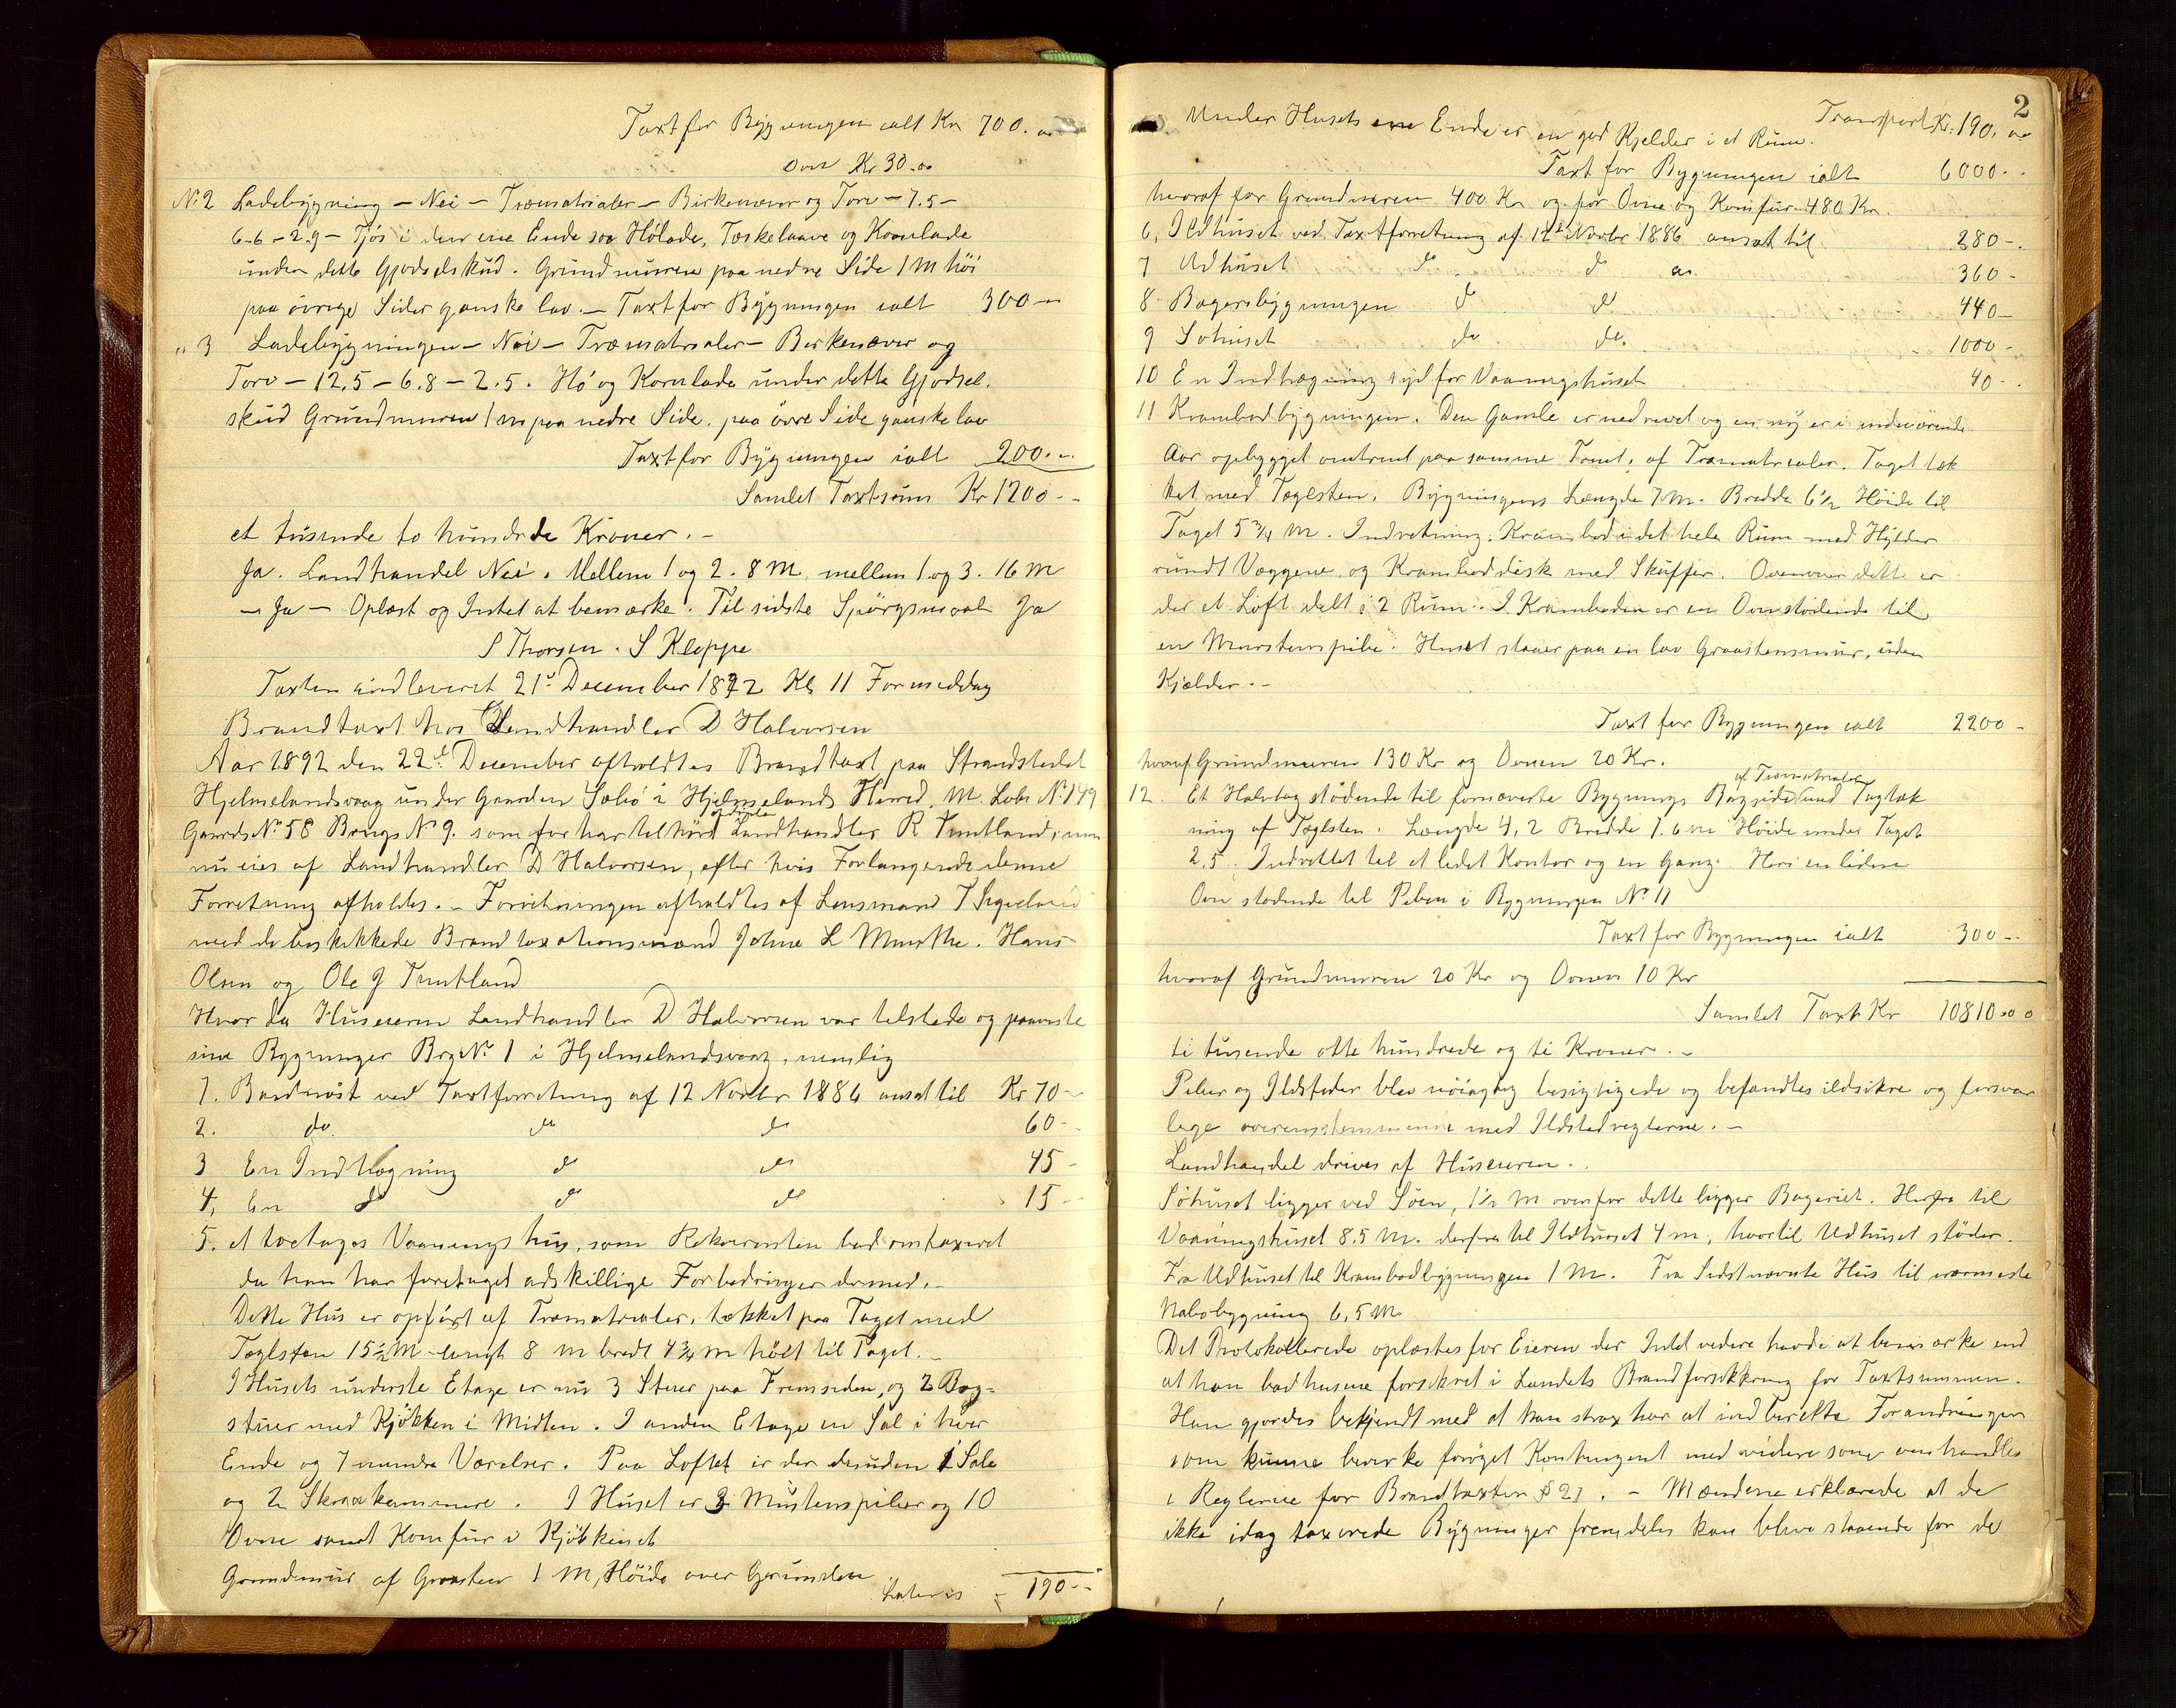 Taxt for Bygningen ialt Kr 700.
Ovn Kr 30.00
No 2 Ladebygning – Nei – Træmatrialer – Birkenæver og Torv – 7.5 –
6.6 – 2.9 – Fjøs i den ene Ende saa Hølade, Tærskelaave og Kornlade
under dette Gjødselskud. Grundmuren paa nedre Side 1 M høi
paa øvrige Sider ganske lav. – Taxt for Bygningen ialt 300 –
" 3 Ladebygningen – Nei – Træmatrialer – Birkenæver og
Torv – 12.5 – 6.8 – 2.5. Hø og Kornlade under dette Gjødsel.
skud Grundmuren 1 m paa nedre Side. paa øvre Side ganske lav
Taxt for Bygningen ialt 200.–
Samlet Taxtsum Kr 1200 –
et tusinde to hundrede Kroner. –
Ja. Landhandel Nei. Mellem 1 og 2. 8 M, mellem 1 og 3. 16 M
– Ja – Oplæst og Intet at bemærke. Til sidste Spørgsmaal Ja
S Thorsen. S Kleppe
Taxten indleveret 21de December 1892 Kl 11 Formiddag
Brandtaxt hos Landhandler D Halvorsen
Aar 1892 den 22de December afholdtes Brandtaxt paa Strandstedet
Hjelmelandsvaag under Gaarden Sæbø i Hjelmelands Herred, M. Løbe No 149
Gaards No 58 Brugs No 9. som før har tilhørt Landhandler R Tuntland, men
nu eies af Landhandler D Halvorsen, efter hvis Forlangende denne
Forretning afholdes. – Forretningen afholdtes af Lensmand T Sigveland
med de beskikkede Brandtaxationsmænd Johne L Munthe. Hans
Olsen og Ole J Tuntland
Hvor da Huseieren Landhandler D Halvorsen var tilstede og paaviste
sine Bygninger Byg No 1 i Hjelmelandsvaag, nemlig
1. Baadnøst ved Taxtforretning af 12 Novbr 1886 ansat til Kr 70 –
2. do. do do 60 –
3 En Indhægning do do 45 –
4. En do do do 15 –
5. et toetages Vaaningshus, som Rekvirenten bad omtaxeret
da han har foretaget adskillige Forbedringer dermed. –
Dette Hus er opført af Træmatrialer, tækket paa Taget med
Taglsten 15½ M langt 8 M bredt 4¾ m høit til Taget. –
I Husets underste Etage er nu 3 Stuer paa Fremsiden, og 2 Bag-
stuer med Kjøkken i Midten. I anden Etage en Sal i hver
Ende og 7 mindre Værelser. Paa Loftet er der desuden 1 Sale
og 2 Skraakammere. I Huset er 3 Murstenspiber og 10
Ovne samt Komfur i Kjøkkenet
Grundmur af Graasten 1 M, Høide over Grunden
Lateris 190 –
2
Transport Kr. 190.
Under Husets ene Ende er en god Kjelder i et Rum.
Taxt for Bygningen ialt 6000 –
hvoraf for Grundmuren 400 Kr og for Ovne og Komfur 480 Kr.
6, Ildhuset ved Taxtforretning af 12te Novbr 1886 ansat til 280 –
7 Udhuset do do 360 –
8 Bageribygningen do do 440 –
9 Søhuset do do. 1000 –
10 En Indhægning syd for Vaaningshuset 40 –
11 Krambodbygningen. Den Gamle er nedrevet og en ny er i indeværende
Aar opbygget omtrent paa samme Tomt, af Træmatrialer. Taget tæk
ket med Taglsten. Bygningens Længde 7 M. Bredde 6½ Høide til
Taget 5¾ M. Indretning. Krambod i det hele Rum med Hylder
rundt Væggene, og Kramboddisk med Skuffer. Ovenover dette er
der et Loft delt i 2 Rum. I Kramboden er en Ovn stødende til
en Murstenspibe. Huset staaer paa en lav Graastensmur, uden
Kjælder. –
Taxt for Bygningen ialt 2200 –
hvoraf Grundmuren 130 Kr og Ovnen 20 Kr.
af Træmatrialer
12. Et Halvtag stødende til fornævnte Bygnings Bagside med Tagtæk
ning af Taglsten. Længde 4,2 Bredde 1.6 m Høide under Taget
2.5. Indrettet til et lidet Kontor og en Gang. Heri en liden
Ovn stødende til Piben i Bygningen No 11
Taxt for Bygningen ialt 300 –
hvoraf Grundmuren 20 Kr og Ovnen 10 Kr
Samlet Taxt Kr 10810.00
ti tusende otte hundrede og ti Kroner. –
Piber og Ildsteder blev nøiagtig besigtigede og befandtes ildsikre og forsvar
lige overensstemmende med Ildstedvægterne. –
Landhandel drives af Huseieren.
Søhuset ligger ved Søen, 1½ M ovenfor dette ligger Bageriet. Herfra til
Vaaningshuset 8.5 M. derfra til Ildhuset 4 m, hvortil Udhuset støder.
Fra Udhuset til Krambodbygningen 1 M. Fra Sidstnævnte Hus til nærmeste
Nabobygning 6,5 M
Det Protokollerede oplæstes for Eieren der Intet videre havde at bemærke end
at han bad husene forsikret i Landets Brandforsikkring for Taxtsummen.
Han gjordes bekjendt med at han strax har at indberette Forandringer
som kunne bevirke forøget Kontingent med videre som omhandles
i Reglerne for Brandtaxten § 21. – Mændene erklærede at de
ikke idag taxerede Bygninger fremdeles kan blive staaende for de